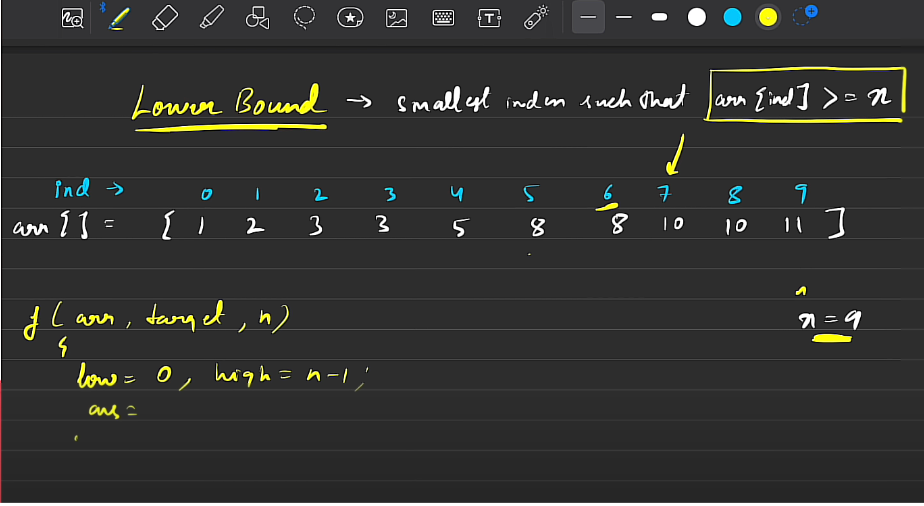 Lower Bound → smallest index such that arr [ind] >= x
ind → 0 1 2 3 4 5 6 7 8 9
arr [ ] = [ 1 2 3 3 5 8 8 10 10 11 ]
f ( arr, target, n)
x = 9
{
low = 0, high = n-1;
ans =